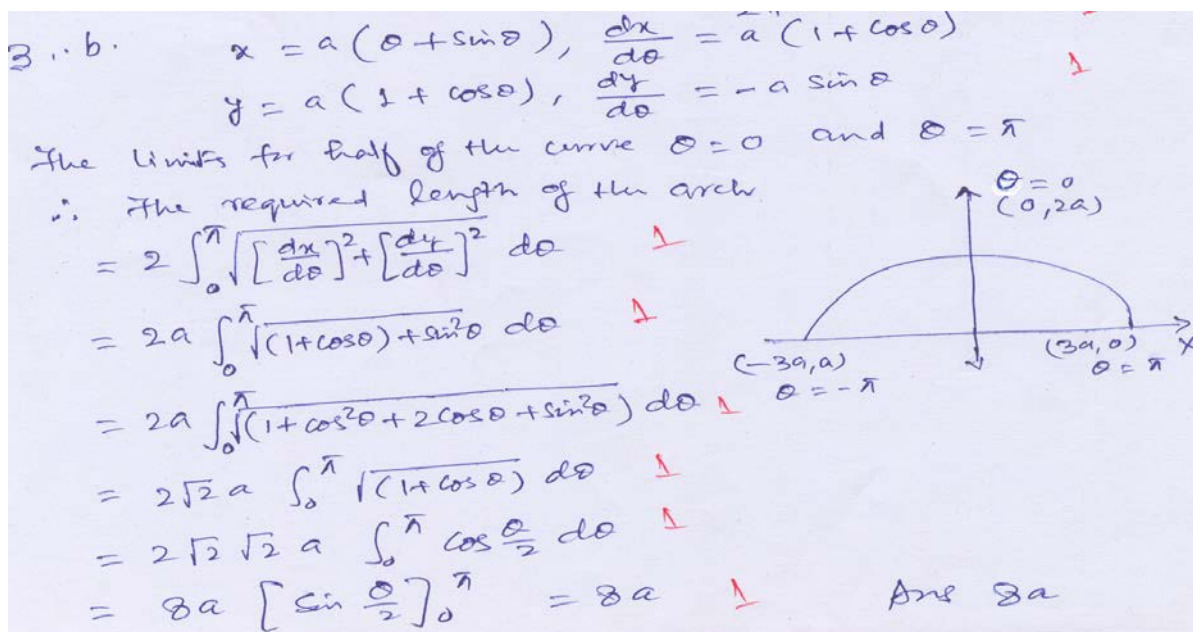 3..b. x = a(θ + sinθ), dx/dθ = a(1 + cosθ)
1
y = a(1 + cosθ), dy/dθ = -a sinθ
The limits for half of the curve θ = 0 and θ = π
∴ The required length of the arch
= 2 ∫₀^π √([dx/dθ]² + [dy/dθ]²) dθ 1
= 2a ∫₀^π √((1+cosθ) + sin²θ) dθ 1
= 2a ∫₀^π √(1 + cos²θ + 2cosθ + sin²θ) dθ 1
= 2√2 a ∫₀^π √(1+cosθ) dθ 1
= 2√2 √2 a ∫₀^π cos θ/2 dθ 1
= 8a [sin θ/2]₀^π = 8a 1 Ans 8a
θ = 0
(0,2a)
(-3a,a)
θ = -π
(3a,0)
θ = π
x